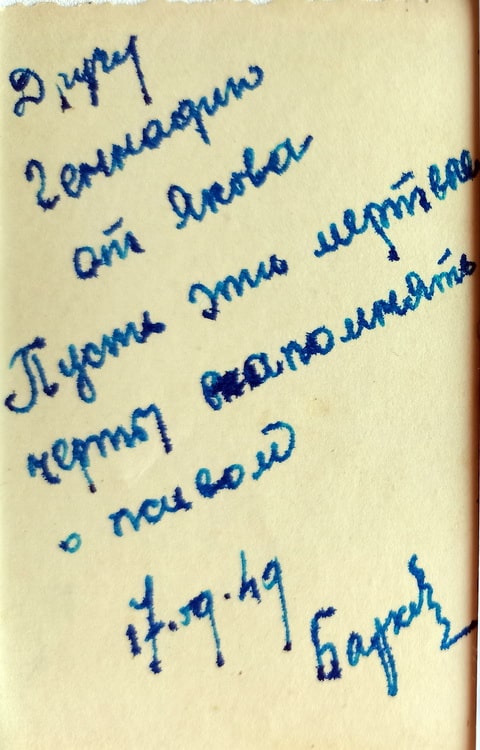 Другу
Геннадию
от Якова
Пусть эти мертвые
черты напомнять
о живом
49